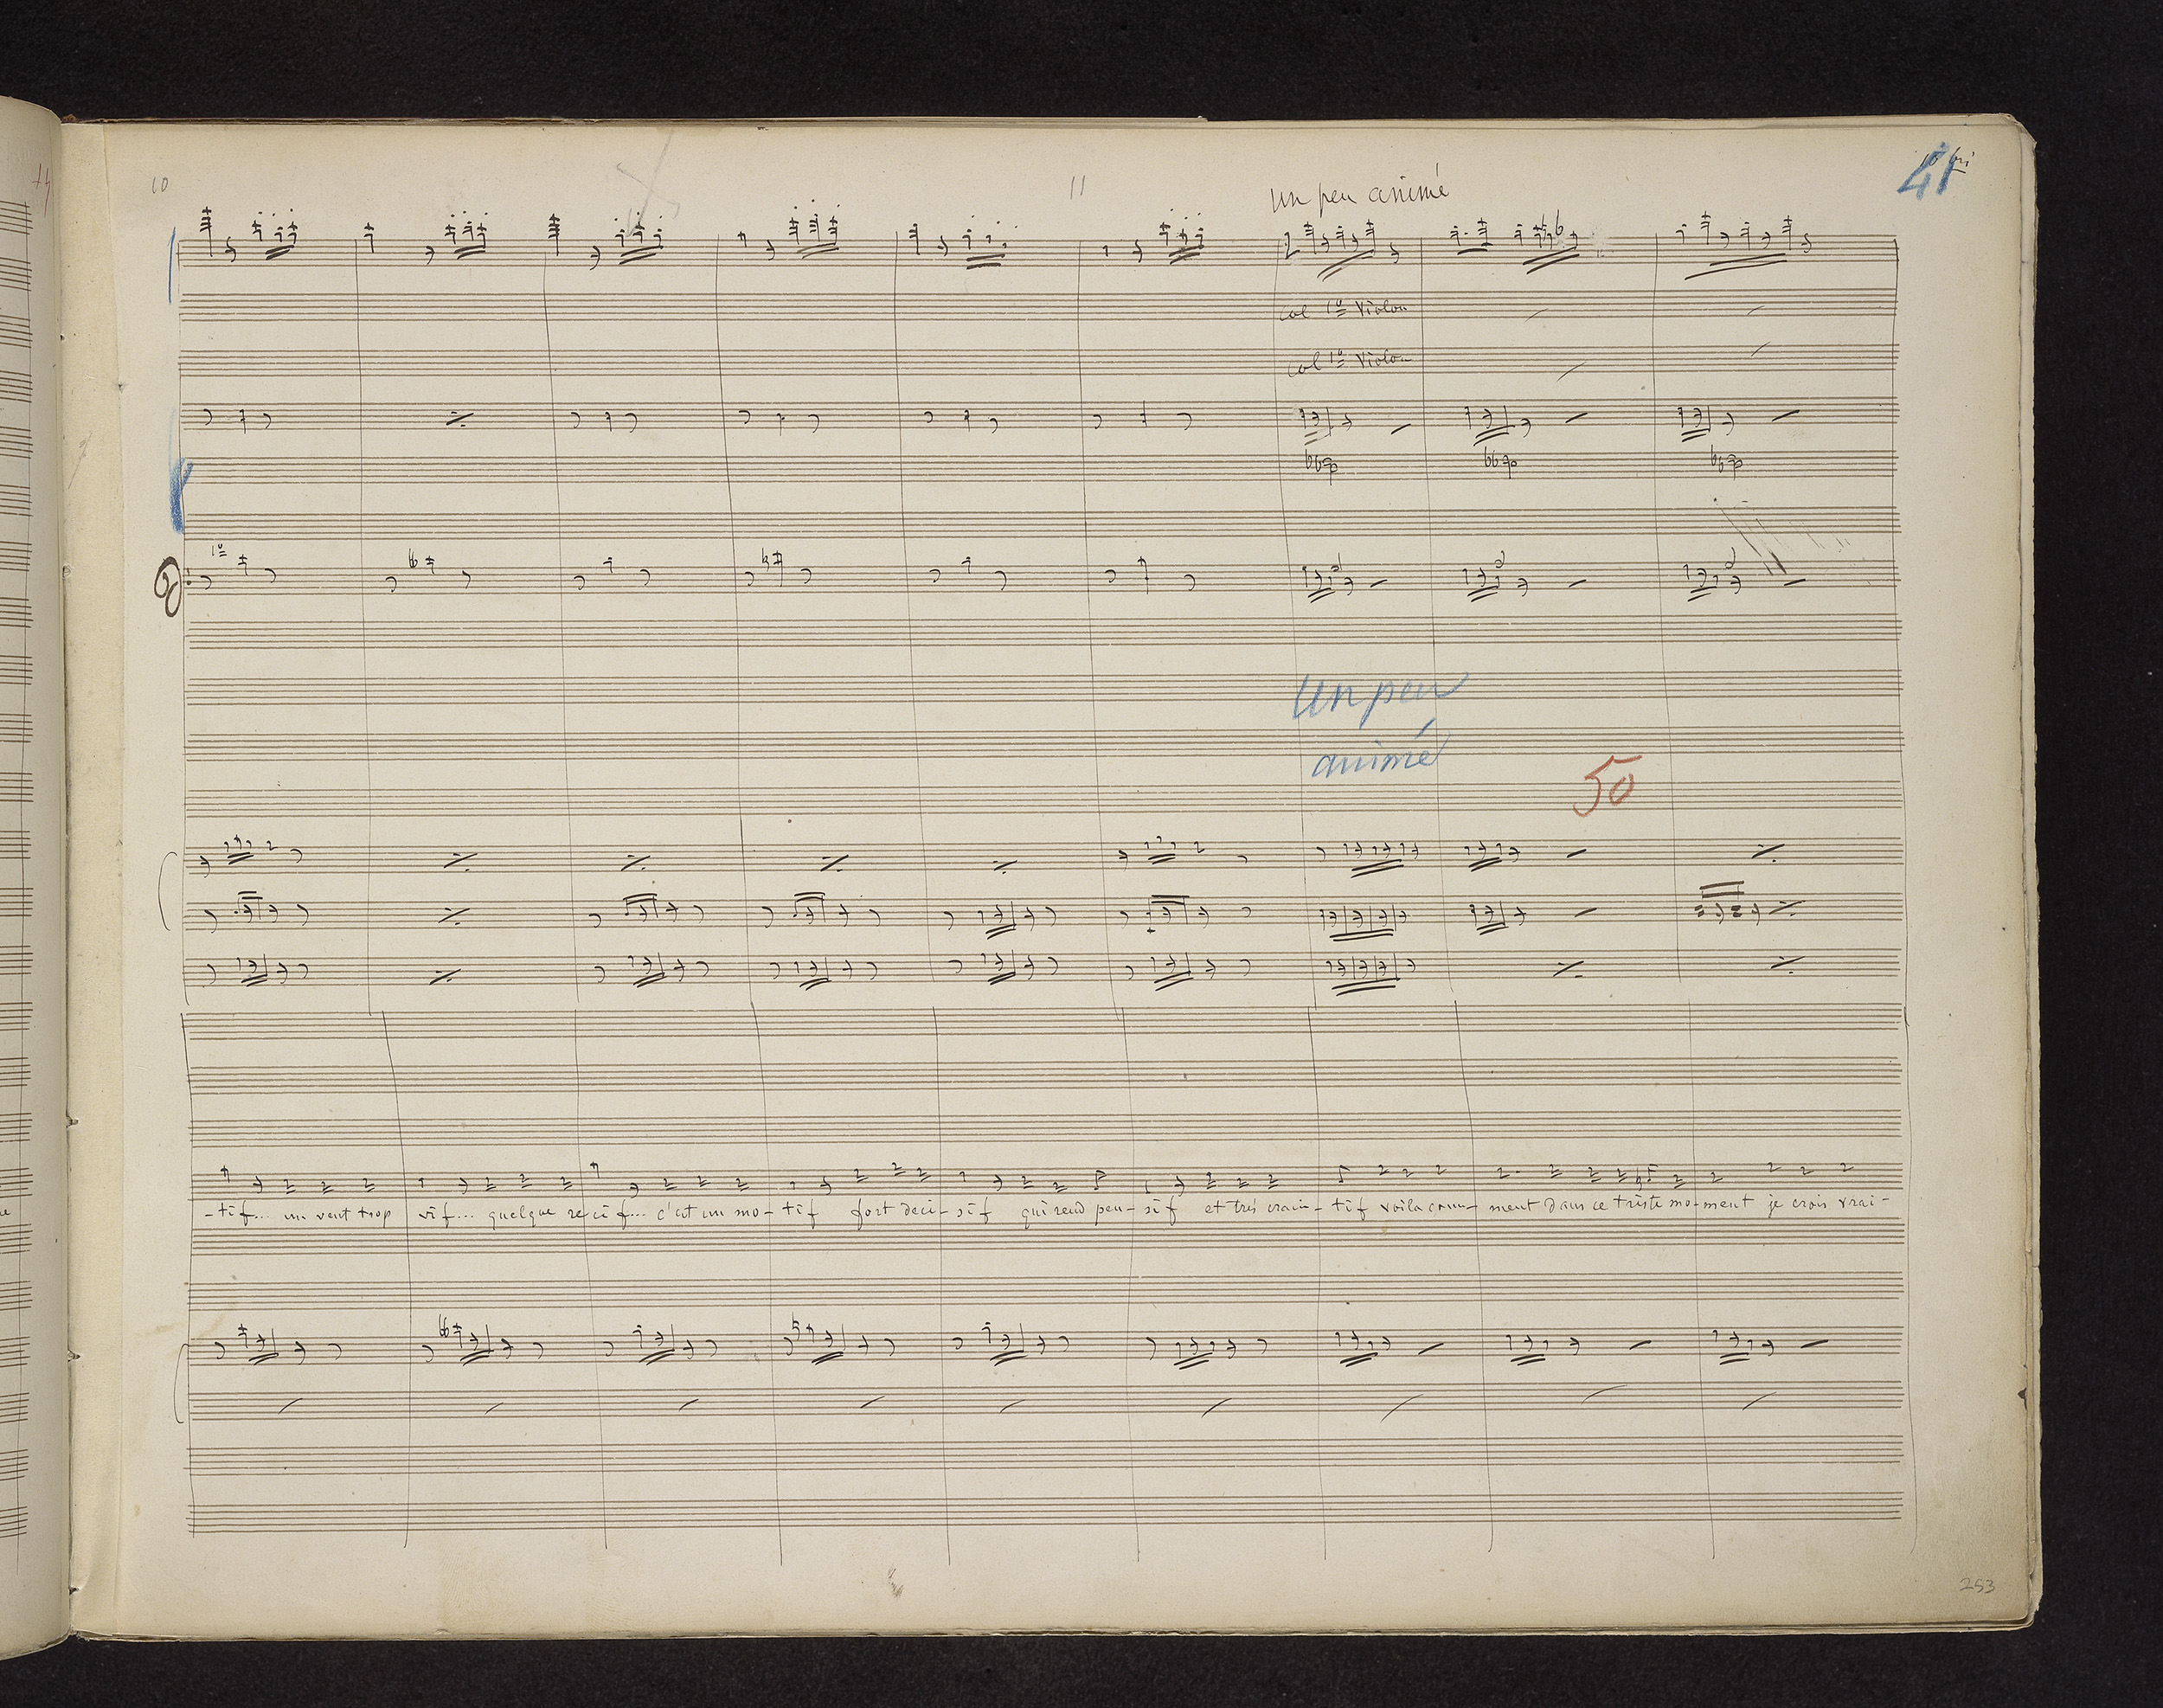 10
11
un peu animé
41
col 1º Violon
col 1º Violon
1º
Un peu
animé
50
-tif... un vent trop vif... quelque recif... c'est un mo-tif fort deci-sif qui rend pen-sif et très crain-tif voila comm-ment dans ce triste mo-ment je crois vrai-
253